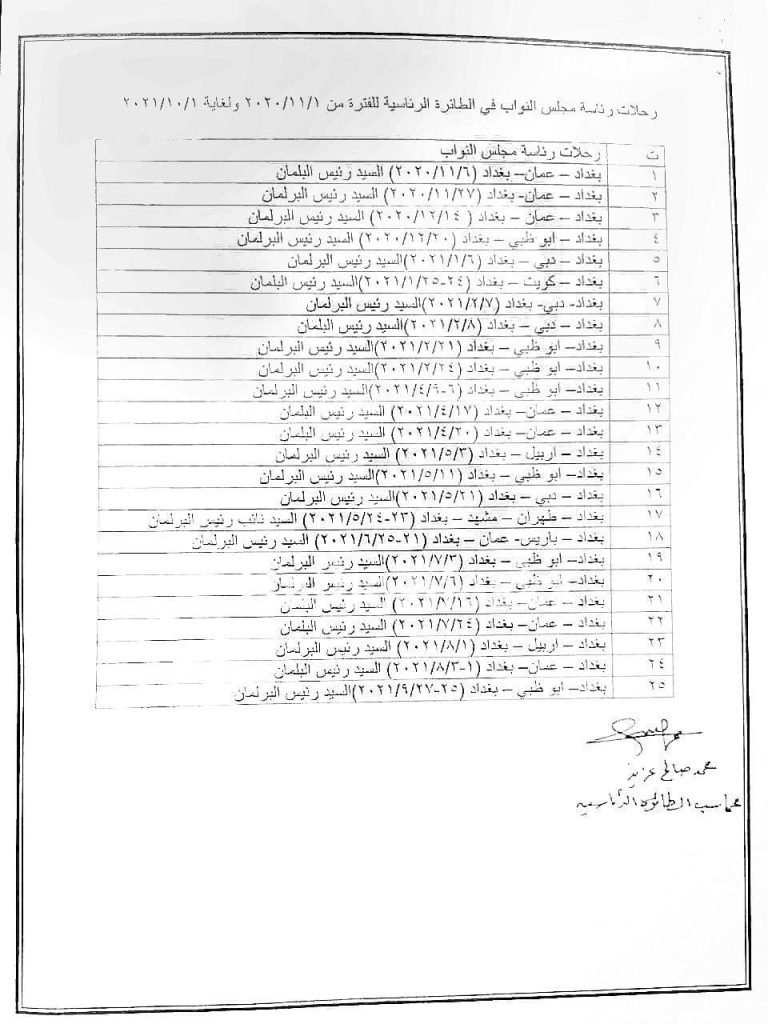 رحلات رئاسة مجلس النواب في الطائرة الرئاسية للفترة من ٢٠٢٠/١١/١ ولغاية ٢٠٢١/١٠/١
ت رحلات رئاسة مجلس النواب
١ بغداد – عمان– بغداد (٢٠٢٠/١١/٦) السيد رئيس البلمان
٢ بغداد – عمان- بغداد (٢٠٢٠/١١/٢٧) السيد رئيس البرلمان
٣ بغداد – عمان – بغداد (٢٠٢٠/١٢/١٤ ) السيد رئيس البرلمان
٤ بغداد – ابو ظبي – بغداد (٢٠٢٠/١٢/٢٠) السيد رئيس البرلمان
٥ بغداد – دبي – بغداد (٢٠٢١/١/٦) السيد رئيس البرلمان
٦ بغداد – كويت – بغداد (٢٤-٢٠٢١/١/٢٥)السيد رئيس البلمان
٧ بغداد- دبي- بغداد (٢٠٢١/٢/٧)السيد رئيس البرلمان
٨ بغداد – دبي – بغداد (٢٠٢١/٢/٨)السيد رئيس البلمان
٩ بغداد– ابو ظبي – بغداد (٢٠٢١/٢/٢١)السيد رئيس البرلمان
١٠ بغداد– ابو ظبي – بغداد (٢٠٢١/٢/٢٤)السيد رئيس البرلمان
١١ بغداد – ابو ظبي – بغداد (٦-٢٠٢١/٤/٩)السيد رئيس البرلمان
١٢ بغداد – عمان– بغداد (٢٠٢١/٤/١٧) السيد رئيس البلمان
١٣ بغداد – عمان– بغداد (٢٠٢١/٤/٢٠) السيد رئيس البلمان
١٤ بغداد – اربيل – بغداد (٢٠٢١/٥/٣) السيد رئيس البرلمان
١٥ بغداد– ابو ظبي – بغداد (٢٠٢١/٥/١١) السيد رئيس البرلمان
١٦ بغداد – دبي – بغداد (٢٠٢١/٥/٢١)السيد رئيس البرلمان
١٧ بغداد – طهران – مشهد – بغداد (٢٣-٢٠٢١/٥/٢٤) السيد نائب رئيس البرلمان
١٨ بغداد – باريس- عمان – بغداد (٢١-٢٠٢١/٦/٢٥) السيد رئيس البرلمان
١٩ بغداد– ابو ظبي – بغداد (٢٠٢١/٧/٣)السيد رئيس البرلمان
٢٠ بغداد– ابو ظبي – بغداد (٢٠٢١/٧/٦) السيد رئيس البرلمان
٢١ بغداد – عمان– بغداد (٢٠٢١/٧/١٦) السيد رئيس البلمان
٢٢ بغداد – عمان– بغداد (٢٠٢١/٧/٢٤) السيد رئيس البلمان
٢٣ بغداد – اربيل – بغداد (٢٠٢١/٨/١) السيد رئيس البرلمان
٢٤ بغداد – عمان– بغداد (١-٢٠٢١/٨/٣) السيد رئيس البلمان
٢٥ بغداد– ابو ظبي – بغداد (٢٥-٢٠٢١/٩/٢٧)السيد رئيس البرلمان
محمد صالح عزيز
محاسب الطائرة الرئاسية